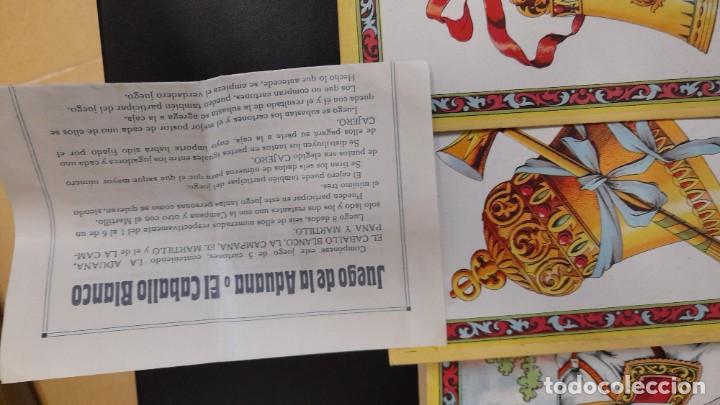 Juego de la Aduana o El Caballo Blanco
Compónese este juego de 5 cartones, conteniendo LA ADUANA,
EL CABALLO BLANCO, LA CAMPANA, EL MARTILLO y el de LA CAM-
PANA Y MARTILLO.
Luego 8 dados, seis de ellos numerados respectivamente del 1 al 6 de un
solo lado y los dos restantes uno con la Campana y otro con el Martillo.
Pueden participar en este juego tantas personas como se quieran, siendo
el mínimo tres.
El cajero puede también participar del juego.
Se tiran los seis dados de números para que el que saque mayor número
de puntos sea elegido CAJERO.
Se distribuyen los tantos en partes iguales entre los jugadores y cada uno
de ellos pagará su parte a la caja, cuyo importe habrá sido fijado por el
CAJERO.
Luego se subastan los cartones y el mejor postor de cada uno de ellos se
queda con él y el resultado de la subasta se agrega a la caja.
Los que no compran cartones, pueden también participar del juego.
Hecho lo que antecede, se empieza el verdadero juego.
todocoleccion.net